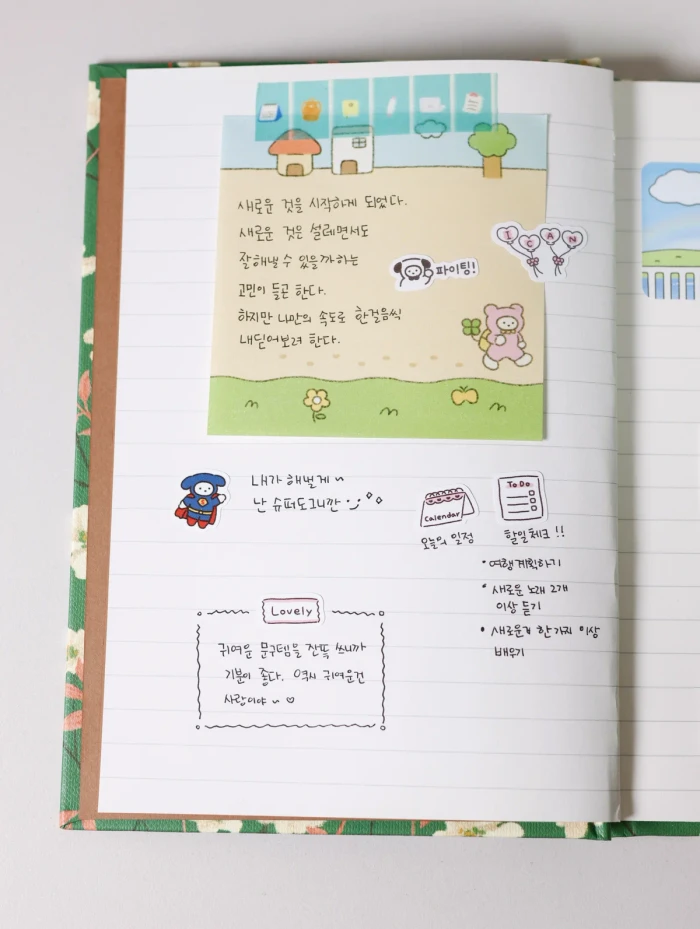 새로운 것을 시작하게 되었다.
새로운 것은 설레면서도
잘해낼 수 있을까하는
고민이 들곤 한다.
하지만 나만의 속도로 한걸음씩
내딛어보려 한다.
I CAN
파이팅!
내가 해낼게~
난 슈퍼도그니깐
Calendar
오늘의 일정
To Do
할일체크!!
• 여행계획하기
• 새로운 노래 2개
이상 듣기
• 새로운거 한가지 이상
배우기
Lovely
귀여운 문구템을 잔뜩 쓰니까
기분이 좋다. 역시 귀여운건
사랑이야~ ♡